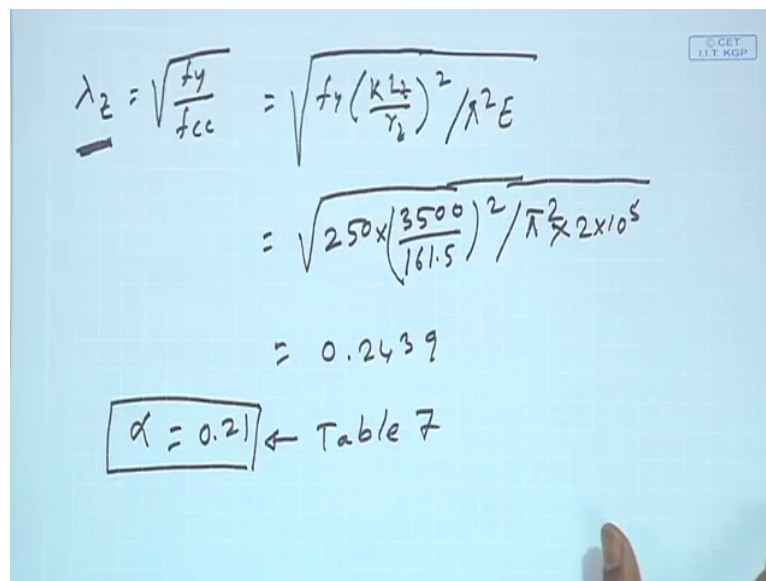 © CET
I.I.T. KGP
λz = √(fy/fcc) = √(fy (KLz/rz)² / π²E)
= √(250 × (3500/161.5)² / π² × 2×10⁵)
= 0.2439
α = 0.21 ← Table 7